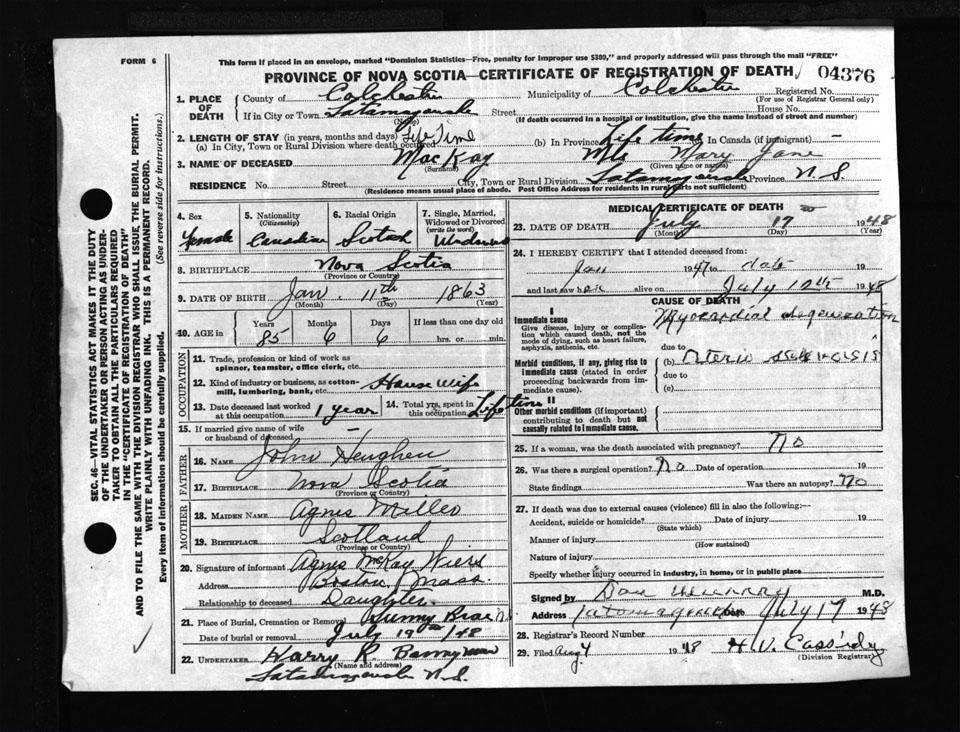 FORM 6
This form if placed in an envelope, marked "Dominion Statistics—Free, penalty for improper use $300," and properly addressed will pass through the mail "FREE"
PROVINCE OF NOVA SCOTIA—CERTIFICATE OF REGISTRATION OF DEATH 04376
SEC. 46—VITAL STATISTICS ACT MAKES IT THE DUTY
OF THE UNDERTAKER OR PERSON ACTING AS UNDER-
TAKER TO OBTAIN ALL THE PARTICULARS REQUIRED
IN THE "CERTIFICATE OF REGISTRATION OF DEATH"
AND TO FILE THE SAME WITH THE DIVISION REGISTRAR WHO SHALL ISSUE THE BURIAL PERMIT.
WRITE PLAINLY WITH UNFADING INK. THIS IS A PERMANENT RECORD.
Every item of information should be carefully supplied. (See reverse side for instructions.)
1. PLACE OF DEATH County of Colchester Municipality of Colchester Registered No.
(For use of Registrar General only)
If in City or Town Tatamagouche Street House No.
(Name) (If death occurred in a hospital or institution, give name instead of street and number)
2. LENGTH OF STAY (in years, months and days)
(a) In City, Town or Rural Division where death occurred Life Time (b) In Province Life time In Canada (if immigrant) —
3. NAME OF DECEASED MacKay Mrs Mary Jane
(Surname) (Given name or names)
RESIDENCE No. Street City, Town or Rural Division Tatamagouche Province N.S.
(Residence means usual place of abode. Post Office Address for residents in rural parts not sufficient)
4. Sex Female
5. Nationality (Citizenship) Canadian
6. Racial Origin Scotch
7. Single, Married, Widowed or Divorced (write the word) Widowed
8. BIRTHPLACE Nova Scotia
(Province or Country)
9. DATE OF BIRTH Jan. 11th 1863
(Month) (Day) (Year)
10. AGE in Years 85 Months 6 Days 6 If less than one day old hrs. or min.
OCCUPATION
11. Trade, profession or kind of work as spinner, teamster, office clerk, etc.
12. Kind of industry or business, as cotton-mill, lumbering, bank, etc. House Wife
13. Date deceased last worked at this occupation 1 year 14. Total yrs. spent in this occupation Life time
15. If married give name of wife or husband of deceased —
FATHER
16. NAME John
17. BIRTHPLACE Nova Scotia
(Province or Country)
MOTHER
18. MAIDEN NAME Agnes Miller
19. BIRTHPLACE Scotland
(Province or Country)
20. Signature of informant Agnes McKay Wiers
Address Boston Mass.
Relationship to deceased Daughter
21. Place of Burial, Cremation or Removal Sunny Brae N.S.
Date of burial or removal July 19th /48
22. UNDERTAKER Harry R. Bonnyman
(Name and address)
Tatamagouche N.S.
MEDICAL CERTIFICATE OF DEATH
23. DATE OF DEATH July 17 1948
(Month) (Day) (Year)
24. I HEREBY CERTIFY that I attended deceased from:
Jan 1947 to date 19
and last saw her alive on July 12th 1948
CAUSE OF DEATH
I
Immediate cause
Give disease, injury or complication which caused death, not the mode of dying, such as heart failure, asphyxia, asthenia, etc.
Myocardial degeneration
due to
Morbid conditions, if any, giving rise to immediate cause (stated in order proceeding backwards from immediate cause).
(b) Arterio sclerosis
due to
(c)
II
Other morbid conditions (if important) contributing to death but not causally related to immediate cause.
25. If a woman, was the death associated with pregnancy? No
26. Was there a surgical operation? No Date of operation 19
State findings Was there an autopsy? No
27. If death was due to external causes (violence) fill in also the following:—
Accident, suicide or homicide? Date of injury 19
(State which)
Manner of injury
(How sustained)
Nature of injury
Specify whether injury occurred in industry, in home, or in public place
Signed by Dan M.D.
Address Tatamagouche Date July 17 1948
28. Registrar's Record Number
29. Filed Aug 4 1948 H.V. Cassidy
(Division Registrar)